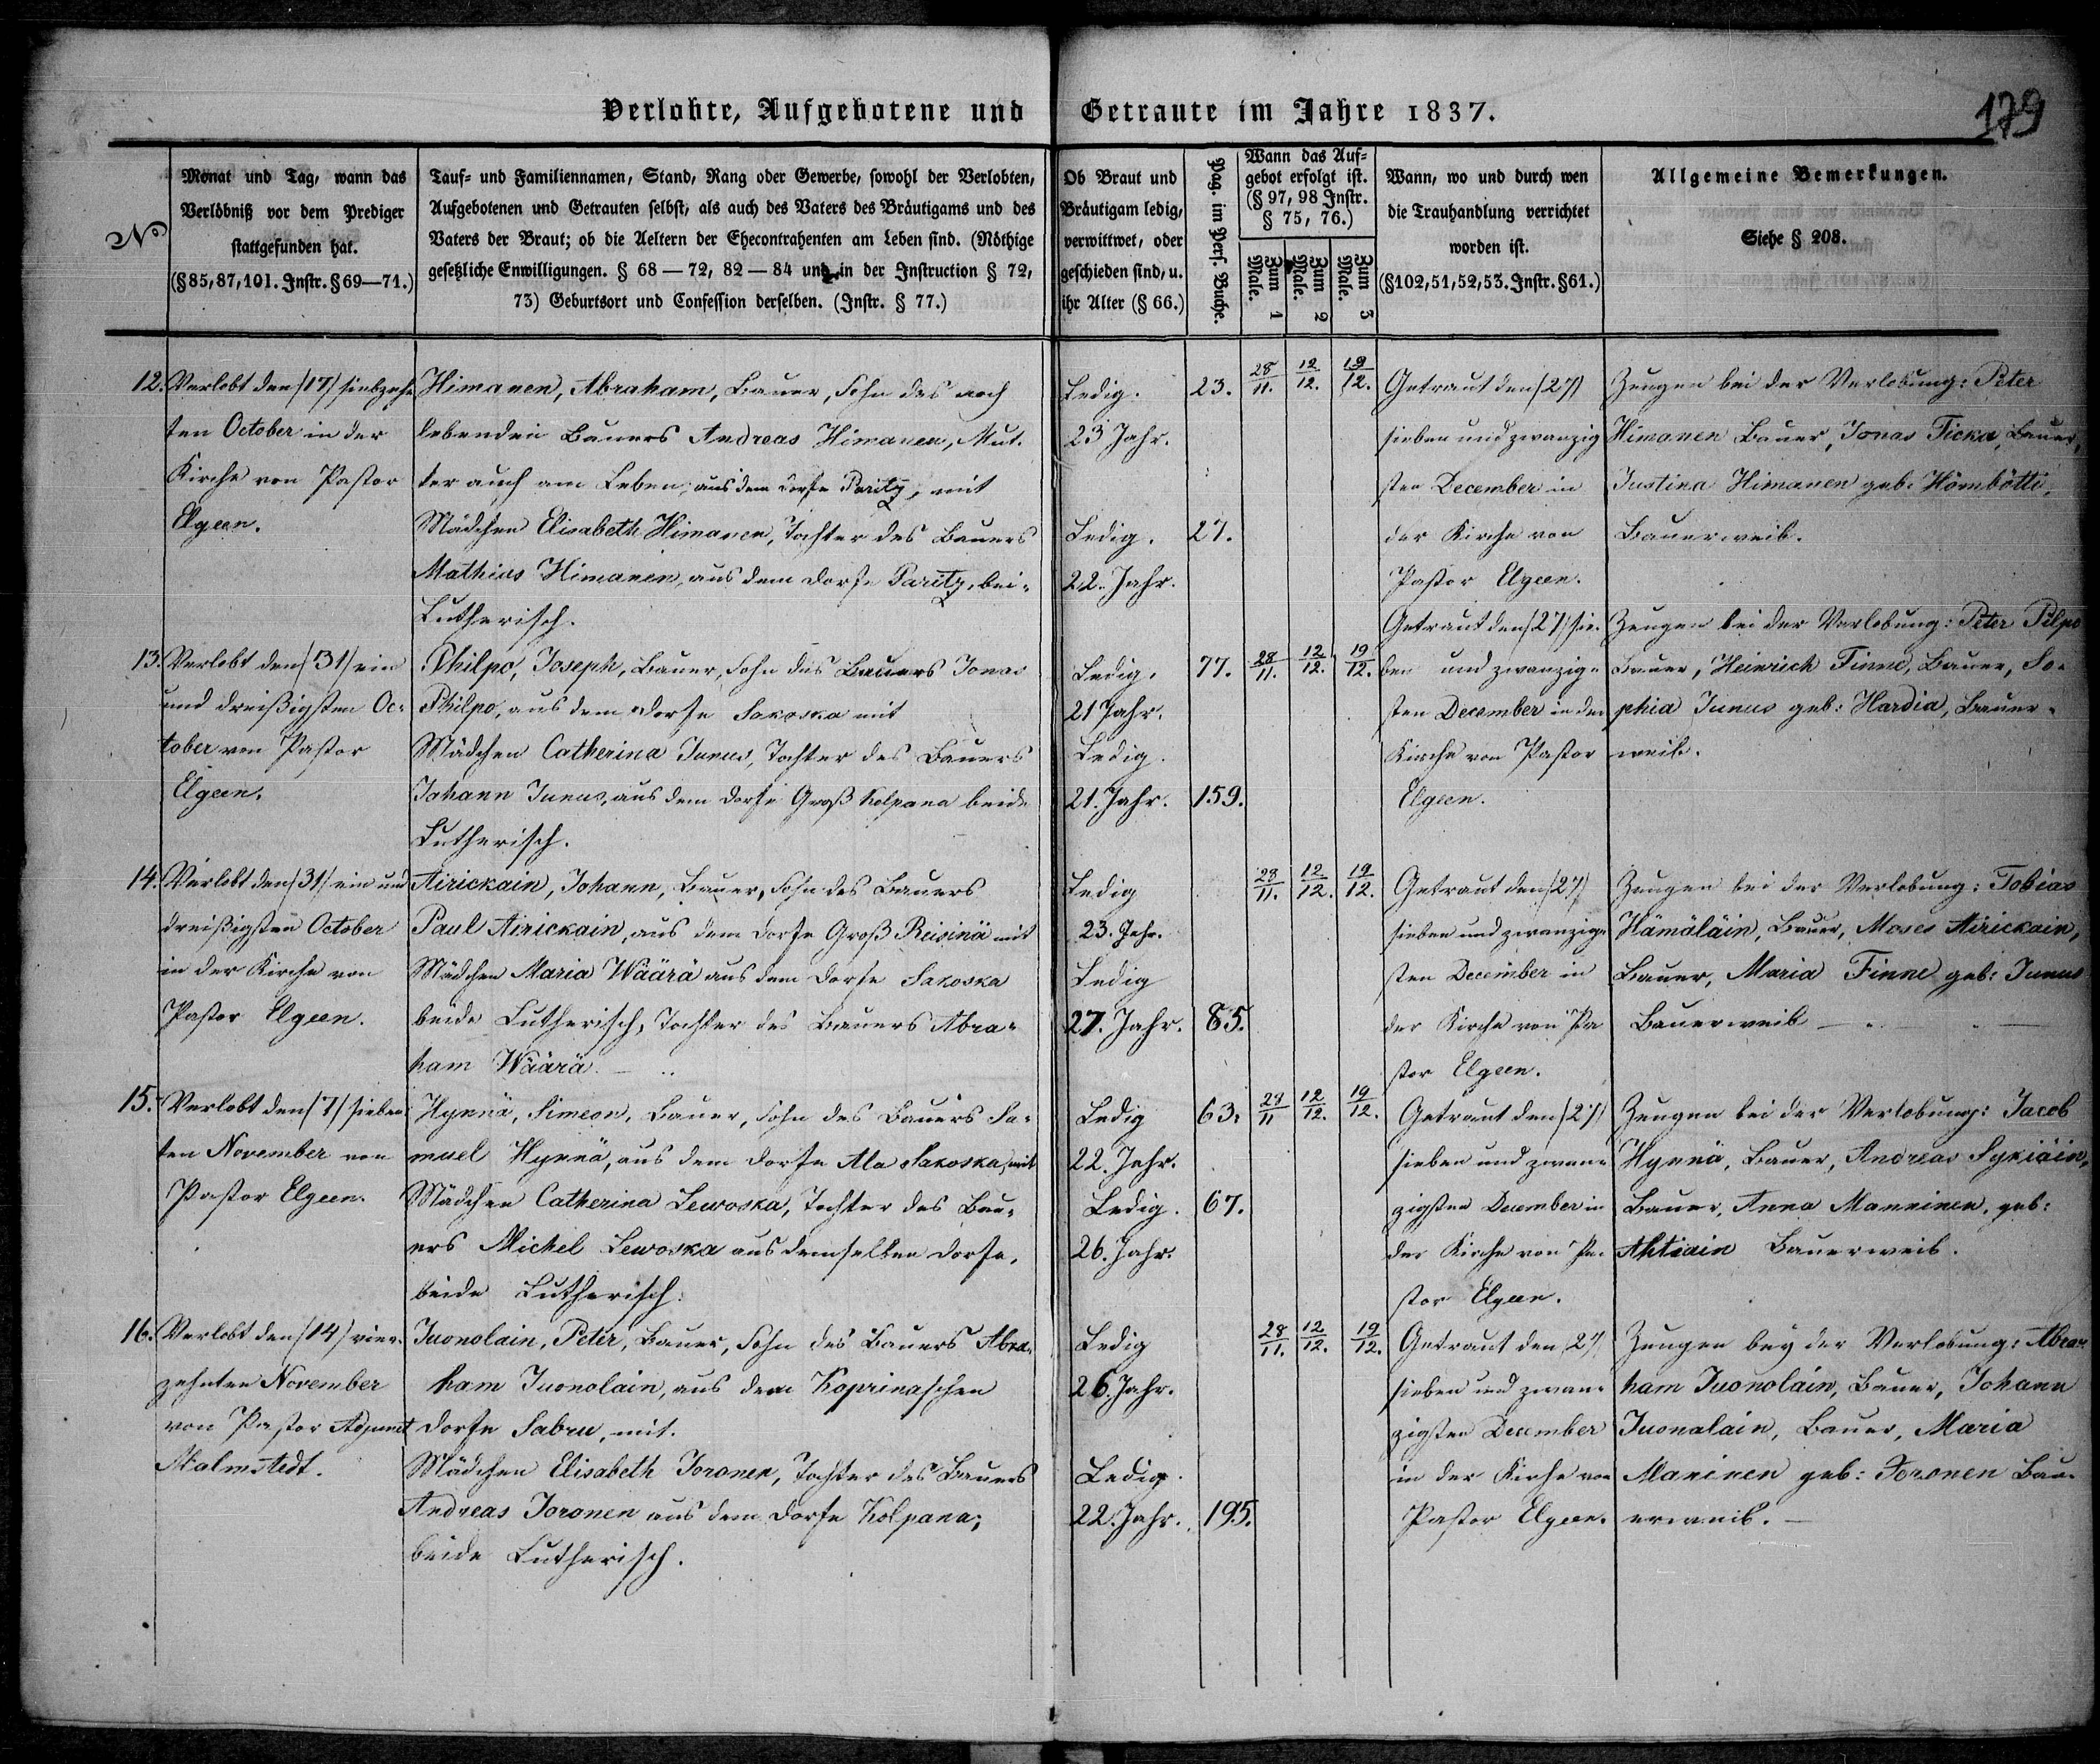 Verlobte, Aufgebotene und Getraute im Jahre 1837.
179
No
Monat und Tag, wann das
Verlöbniß vor dem Prediger
stattgefunden hat.
(§85,87,101. Instr. §69—71.)
Tauf- und Familiennamen, Stand, Rang oder Gewerbe, sowohl der Verlobten,
Aufgebotenen und Getrauten selbst, als auch des Vaters des Bräutigams und des
Vaters der Braut; ob die Aeltern der Ehecontrahenten am Leben sind. (Nöthige
gesetzliche Enwilligungen. § 68—72, 82—84 und in der Instruction § 72,
73) Geburtsort und Confession derselben. (Instr. § 77.)
Ob Braut und
Bräutigam ledig,
verwittwet, oder
geschieden sind, u.
ihr Alter (§ 66.)
Pag. im Pers. Buche.
Wann das Auf-
gebot erfolgt ist.
(§ 97, 98 Instr.
§ 75, 76.)
Zum 1 Male.
Zum 2 Male.
Zum 3 Male.
Wann, wo und durch wen
die Trauhandlung verrichtet
worden ist.
(§102,51,52,53. Instr. §61.)
Allgemeine Bemerkungen.
Siehe § 208.
12.
Verlobt den (17) siebzehn
ten October in der
Kirche von Pastor
Elgeen.
Himanen, Abraham, Bauer, Sohn des noch
lebenden Bauers Andreas Himanen, Mut-
ter auch am Leben, aus dem Dorfe Paritz, mit
Mädchen Elisabeth Himanen, Tochter des Bauers
Mathias Himanen, aus dem Dorfe Paritz, bei-
Lutherisch.
Ledig.
23 Jahr.
Ledig.
22. Jahr.
23.
27.
28/11.
12/12.
19/12.
Getraut den (27)
sieben und zwanzig
sten December in
der Kirche von
Pastor Elgeen.
Zeugen bei der Verlobung: Peter
Himanen Bauer, Jonas Ticka, Bauer,
Justina Himanen geb: Hömbötti,
Bauerweib.
13.
Verlobt den (31) ein
und dreißigsten Oc-
tober von Pastor
Elgeen.
Philpo, Joseph, Bauer, Sohn des Bauers Jonas
Philpo, aus dem Dorfe Sakoska mit
Mädchen Catherina Junus, Tochter des Bauers
Johann Junus, aus dem Dorfe Groß Kolpana beide
Lutherisch.
Ledig.
21 Jahr.
Ledig.
21. Jahr.
77.
159.
28/11.
12/12.
19/12.
Getraut den (27) sie-
ben und zwanzig-
sten December in der
Kirche von Pastor
Elgeen.
Zeugen bei der Verlobung: Peter Pilpo
Bauer, Heinrich Finne, Bauer, So-
phia Junus geb: Hardia, Bauer-
weib.
14.
Verlobt den (31) ein und
dreißigsten October
in der Kirche von
Pastor Elgeen.
Airickain, Johann, Bauer, Sohn des Bauers
Paul Airickain, aus dem Dorfe Groß Reisinä mit
Mädchen Maria Wäärä aus dem Dorfe Sakoska
beide Lutherisch, Tochter des Bauers Abra-
ham Wäärä.
Ledig
23. Jahr.
Ledig
27. Jahr.
85.
28/11.
12/12.
19/12.
Getraut den (27)
sieben und zwanzig-
sten December in
der Kirche von Pa
stor Elgeen.
Zeugen bei der Verlobung: Tobias
Hämäläin, Bauer, Moses Airickain,
Bauer, Maria Finne geb: Junus
Bauerweib
15.
Verlobt den (7) sieben
ten November von
Pastor Elgeen.
Hynnä, Simeon, Bauer, Sohn des Bauers Sa-
muel Hynnä, aus dem Dorfe Ala Sakoska, mit
Mädchen Catherina Lewoska, Tochter des Bau-
ers Michel Lewoska aus demselben Dorfe,
beide Lutherisch.
Ledig
22. Jahr.
Ledig.
26. Jahr.
63.
67.
29/11
12/12.
19/12.
Getraut den (27)
sieben und zwan-
zigsten December in
der Kirche von Pa-
stor Elgeen.
Zeugen bei der Verlobung: Jacob
Hynnä, Bauer, Andreas Sykiäin,
Bauer, Anna Manninen, geb:
Ahtiain Bauerweib.
16.
Verlobt den (14) vier-
zehnten November
von Pastor Adjunct
Malmstedt.
Juonolain, Peter, Bauer, Sohn des Bauers Abra-
ham Juonolain, aus dem Koprinaschen
Dorfe Sabru, mit.
Mädchen Elisabeth Joronen, Tochter des Bauers
Andreas Joronen aus dem Dorfe Kolpana;
beide Lutherisch.
Ledig
26. Jahr.
Ledig.
22. Jahr.
195.
28/11.
12/12.
19/12.
Getraut den (27)
sieben und zwan-
zigsten December
in der Kirche von
Pastor Elgeen.
Zeugen bey der Verlobung: Abra-
ham Juonolain, Bauer, Johann
Juonalain, Bauer, Maria
Maninen geb: Joronen Bau-
erweib.